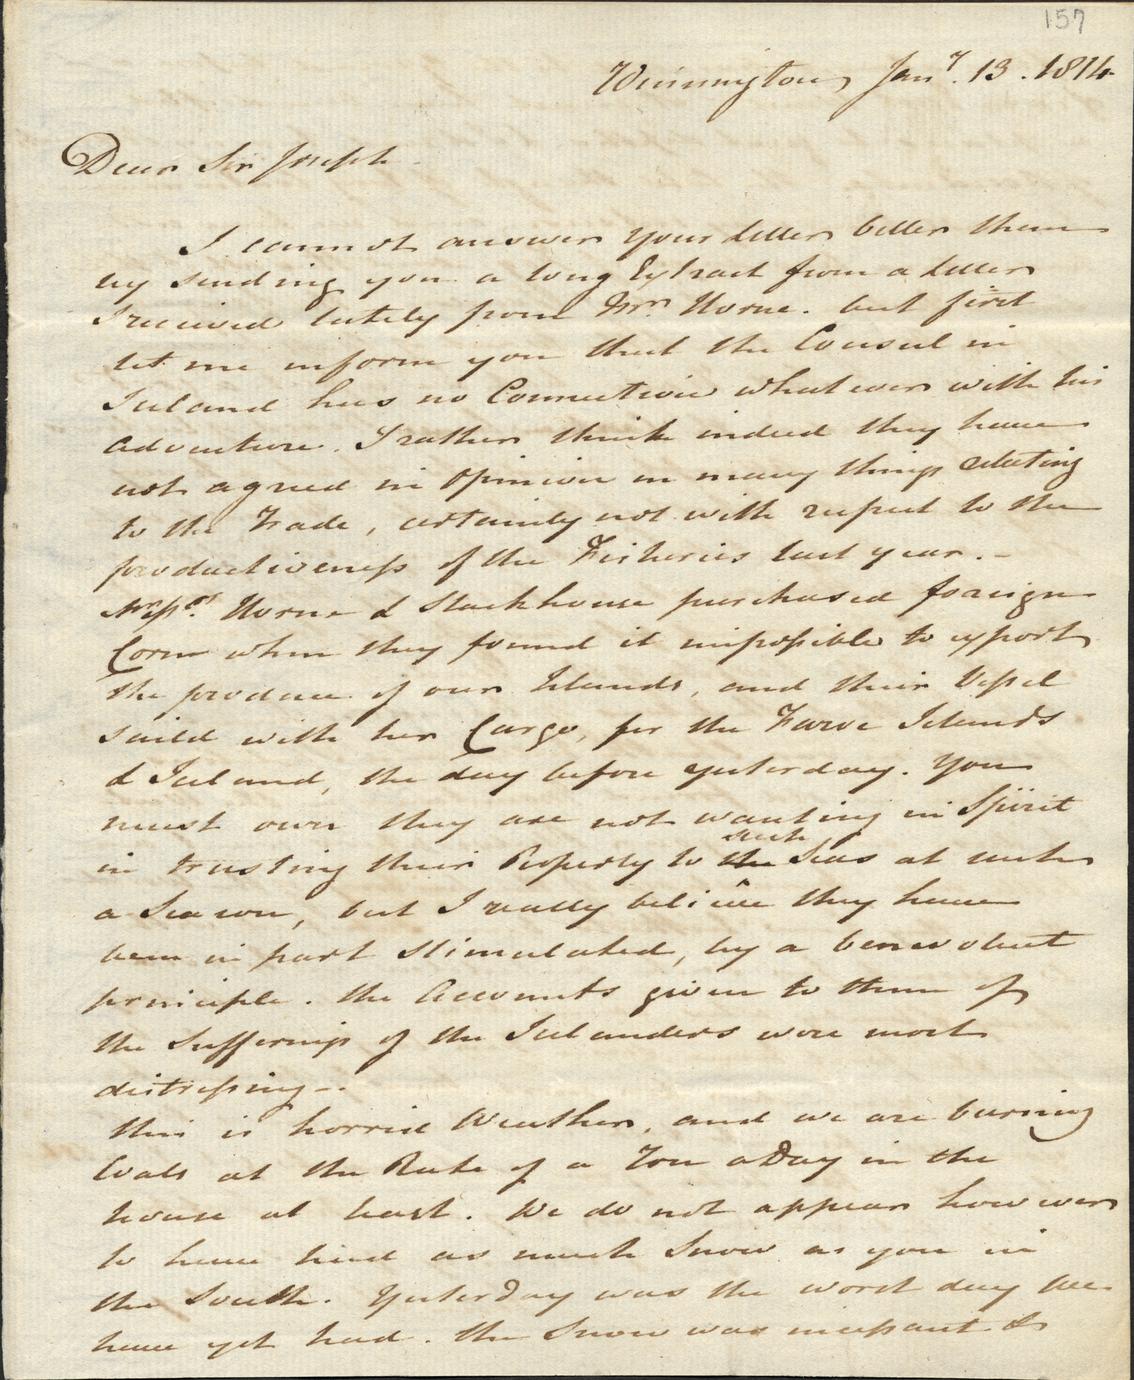 157
Winnington, Jany. 13. 1814
Dear Sir Joseph
I cannot answer your Letter better than
by sending you a long Extract from a Letter
I received lately from Mr. Horne. but first
let me inform you that the Consul in
Iceland has no Connection whatever with his
adventure. I rather think indeed they have
not agreed in Opinion on many things relating
to the Trade, certainly not with respect to the
productiveness of the Fisheries last year. -
Messrs. Horne & Stackhouse purchased foreign
Corn when they found it impossible to export
the produce of our Islands, and their Vessel
saild with her Cargo, for the Faroe Islands
& Iceland, the day before yesterday. You
must own they are not wanting in Spirit
such
in trusting their Property to the Seas at such
a Season, but I really believe they have
been in part stimulated, by a benevolent
principle. the Accounts given to them of
the Sufferings of the Icelanders were most
distressing -.
this is horrid Weather, and we are burning
Coals at the Rate of a Ton a Day in the
house at least. We do not appear however
to have had as much Snow as you in
the South. Yesterday was the worst day we
have yet had. the Snow was incessant &